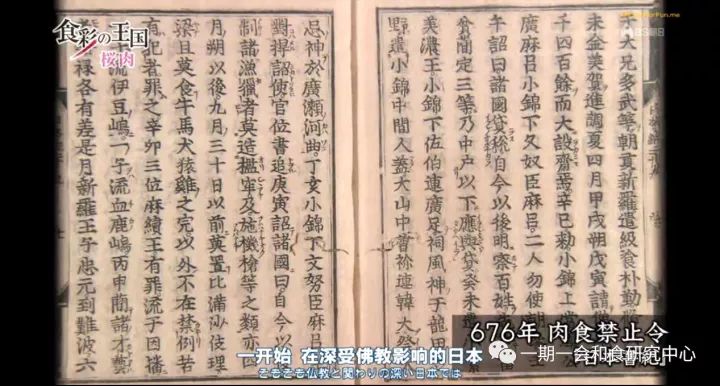 食彩の王国
桜肉
BS朝日
大兄多武等朝貢新羅遣級飡朴勤
未金美賀進調夏四月甲戌朔戊寅請
千四百餘而大設齋焉辛巳勅小錦上
廣麻呂小錦下久努臣麻呂二人勿使朝
午詔曰諸國貸稅自今以後明察百姓
簡定三等乃中戶以下應與貸癸未遣
美濃王小錦下佐伯連廣足祠風神于龍田
野遣小錦中間人蓋大山中曾祢連韓犬祭
忌神於廣瀬河曲丁亥小錦下久努臣麻呂
對捍詔使官位盡追庚寅詔諸國曰自今以
制諸漁獵者莫造檻穽及施機槍等之類亦四
月朔以後九月三十日以前莫置比滿沙伎理
梁且莫食牛馬犬猿雞之宍以外不在禁例若
有犯者罪之辛卯三位麻續王有罪流于因播
流伊豆嶋一子流血鹿嶋丙申簡諸才藝
祿各有差是月新羅王子忠元到難波六
676年 肉食禁止令
日本書紀
一开始 在深受佛教影响的日本
そもそも仏教と関わりの深い日本では
一期一会和食研究中心